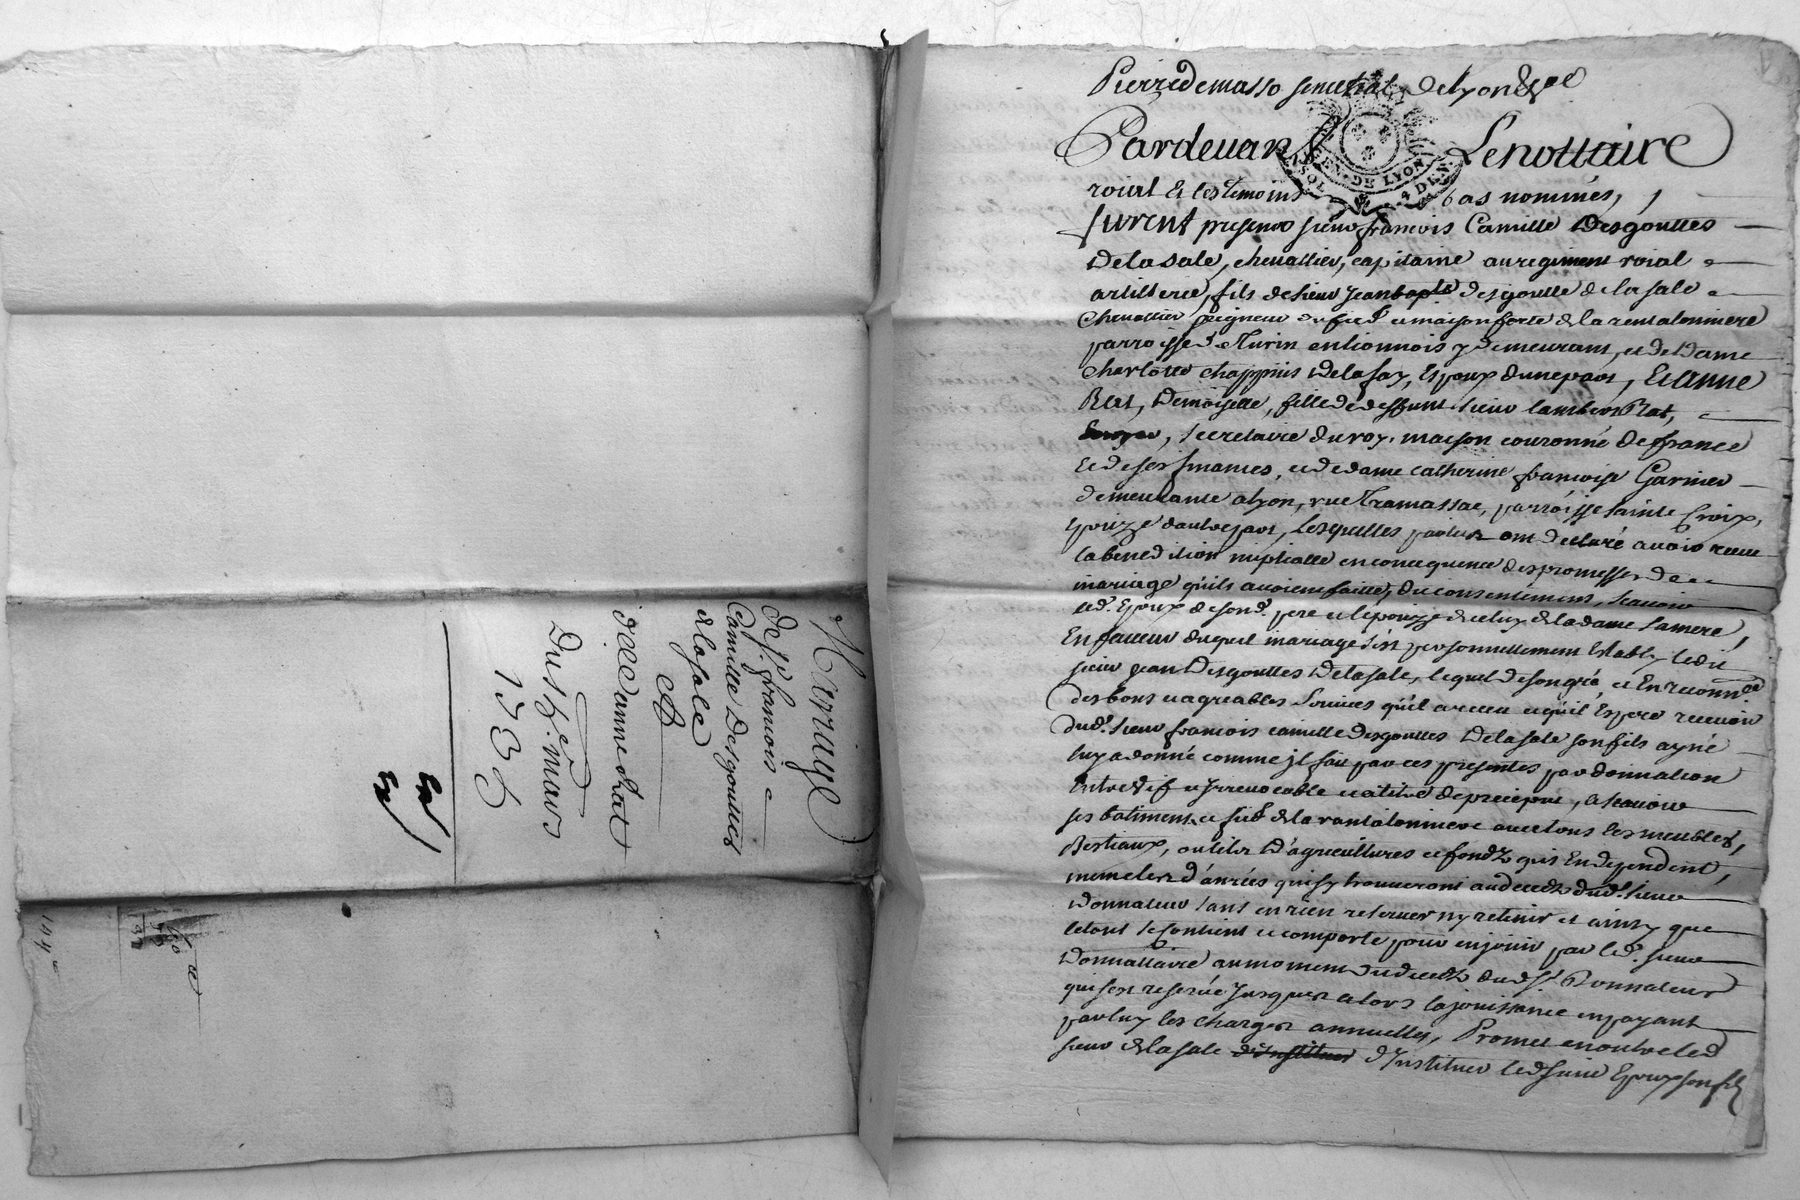 Mariage
de Sr. francois
Camille Desgouttes
delasale
Et
delle anne Rat
Du 5e. mars
1735
Pierre demasso senechal de lyon &
GEN. DE LYON
SOL 4 DEN.
Pardevant Le nottaire
roial Et les temoins bas nommés,
furent presens sieur francois Camille Desgouttes
Delasale, chevallier, capitaine au regiment roial
artillerie, fils de sieur Jean bapte. desgoutte delasale
Chevallier seigneur du fief et maison forte de la rentalonniere
parroisse de Turin en lionnois y demeurant, et de Dame
Charlotte chappuis Delafay, Epoux d'une part, Et anne
Rat, Demoiselle, fille de deffunt sieur lambert Rat,
secretaire du roy, maison couronné de france
Et de ses finances, et de dame catherine francoise Garnier
demeurante a lyon, rue Tramassac, parroisse sainte Croix,
Epouze d'autre part, Lesquelles parties ont declaré avoir receu
la benedition nuptialle en consequence des promesses de
mariage qu'ils avoient faittes, du consentement, scavoir
led. Epoux de sond. pere et lepouze de celuy de la dame sa mere,
En faveur duquel mariage s'est personnellement Etably ledit
sieur jean Desgouttes Delasale, lequel de son gré, et En reconnce
des bons et agreables services qu'il a receu et qu'il Espere recevoir
dud. sieur francois camille desgouttes Delasale son fils ayné
luy a donné comme jl fait par ces presentes par donnation
Entre vif et jrrevocable et a titre de preciput, a scavoir
ses batiments et fief de la rantalonniere avec tous les meubles,
Bestiaux, outils D'agricultures et fondz qui En dependent,
meme les d'anrées qui sy trouveront au decedz dud. sieur
Donnateur sans en rien reserver ny retenir et ainsy que
le tout se contient et comporte pour en jouir par led. sieur
Donnattaire au moment du decedz dud. sr. Donnateur
qui sest reservé jusques alors la jouissance en payant
par luy les charges annuelles, Promet en outre led
sieur delasale d'Instituer d'Instituer led sieur Epoux son fils